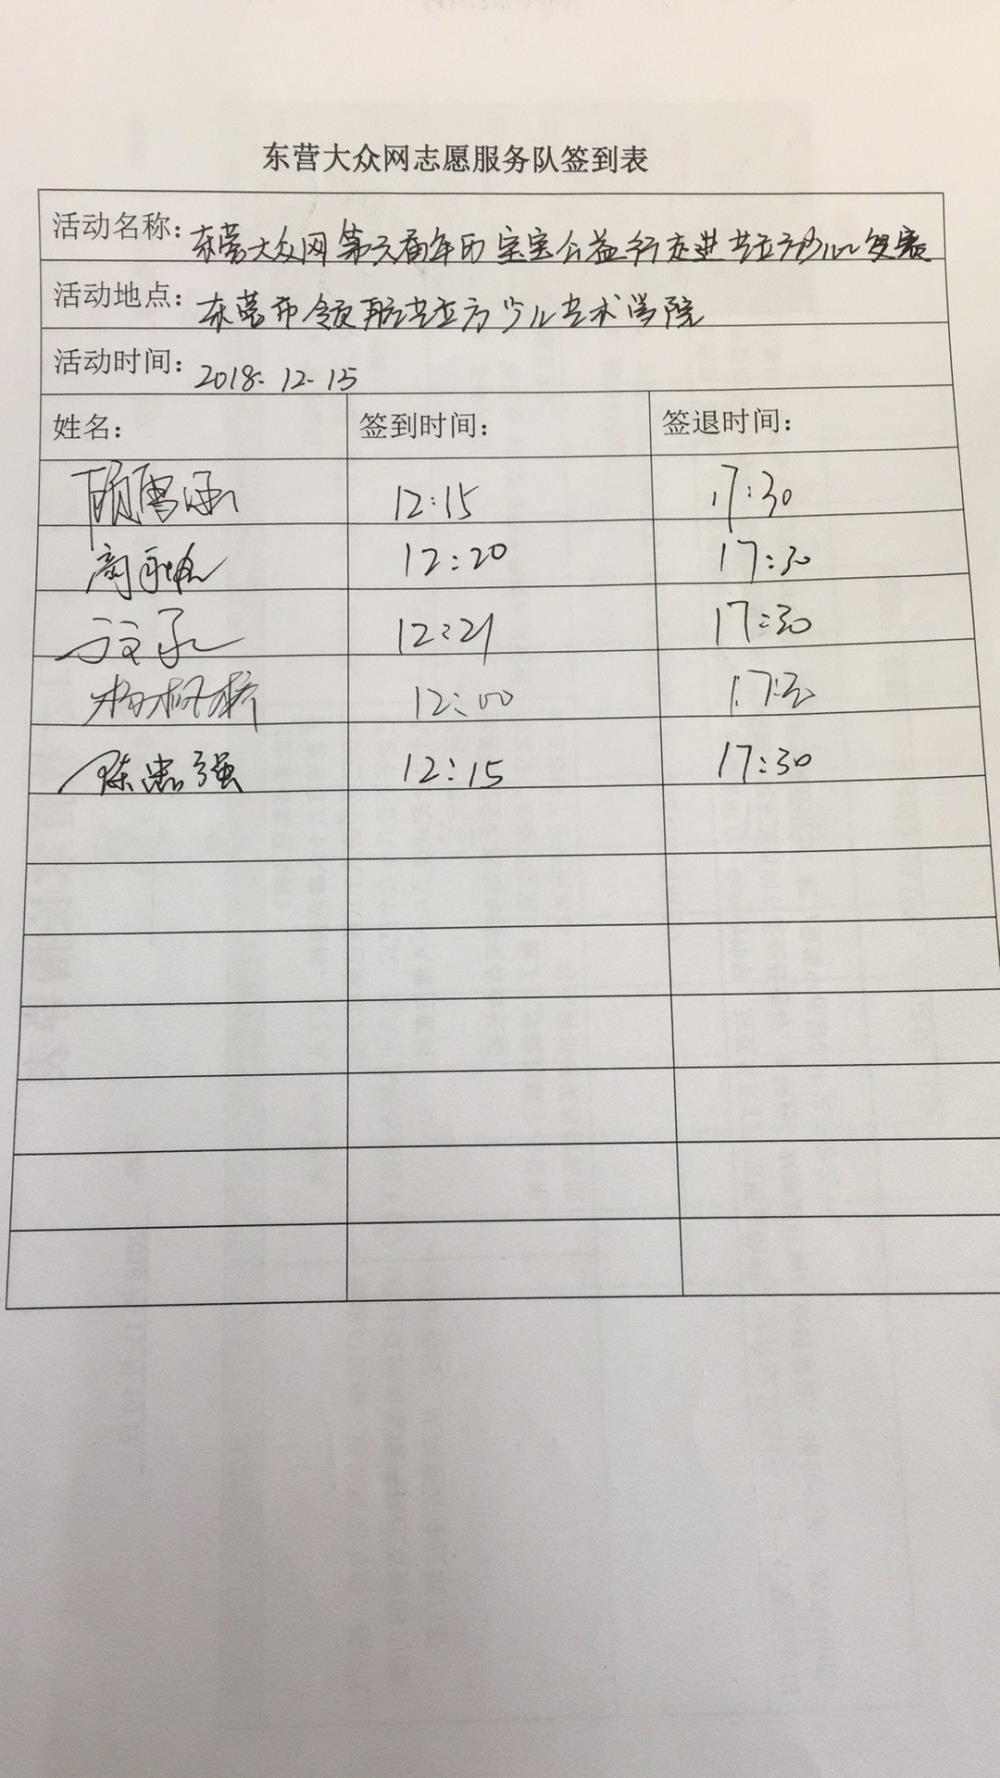 东营大众网志愿服务队签到表
活动名称: 东营大众网第六届年历宝宝公益行走进艺立方少儿复赛
活动地点: 东营市领航艺立方少儿艺术学院
活动时间: 2018.12.15
姓名: 签到时间: 签退时间:
顾雪涵 12:15 17:30
12:20 17:30
12:21 17:30
杨枫桥 12:00 17:30
陈忠强 12:15 17:30